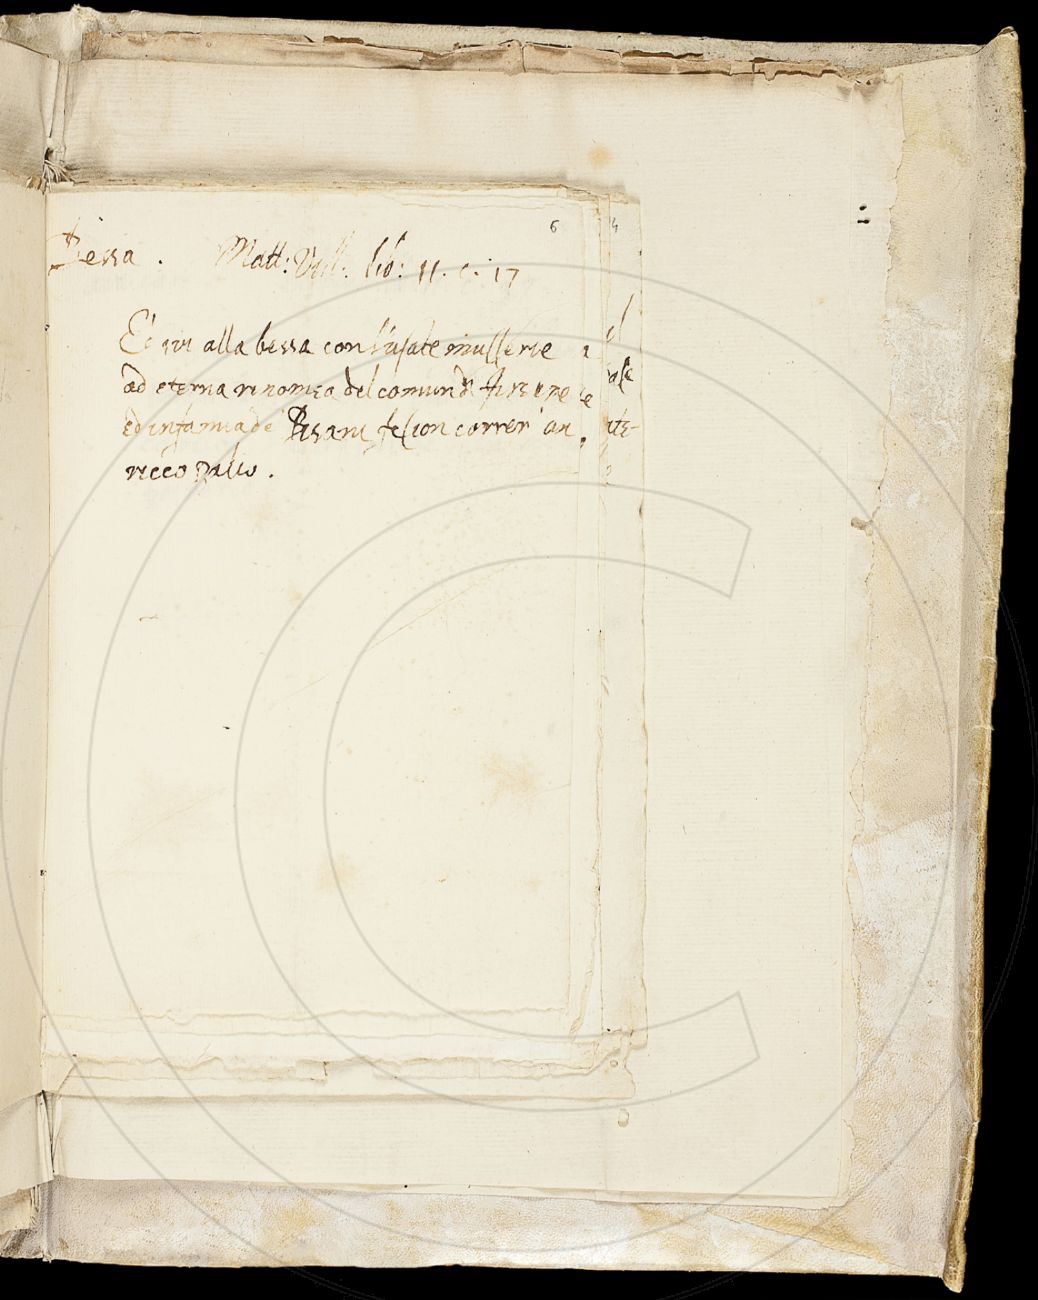 6
4
Bessa. Matt: Vill. lib: 11. c. 17
Et ivi alla bessa con l'usate trusserie
ad eterna rinomea del comun di Firenze
ed infamia de Pisani fecion correr' un
ricco palio.